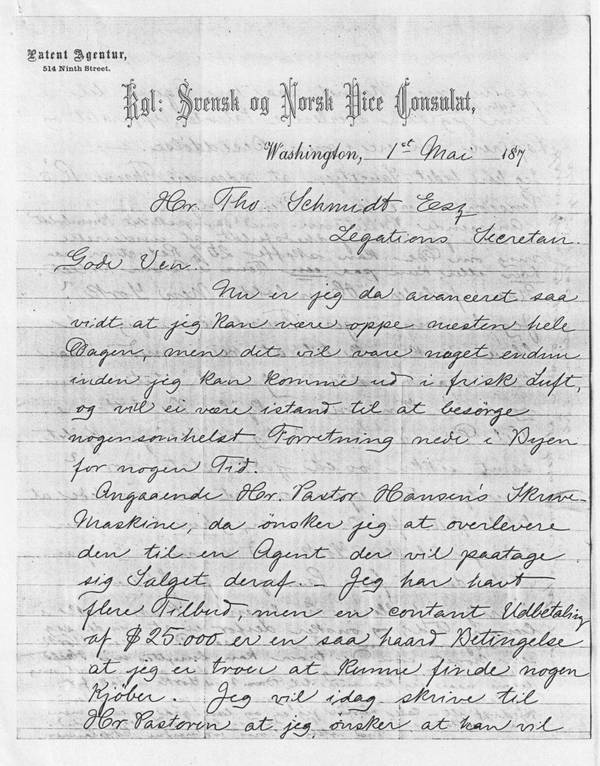 Patent Agentur,
514 Ninth Street.
Kgl: Svensk og Norsk Vice Consulat,
Washington, 1st Mai 187
Hr. Tho Schmidt Esq
Legations Secretair.
Gode Ven.
Nu er jeg da avanceret saa
vidt at jeg kan være oppe næsten hele
Dagen, men det vil vare noget endnu
inden jeg kan komme ud i frisk Luft,
og vil ei være istand til at besörge
nogensomhelst Forretning nede i Byen
for nogen Tid.
Angaaende Hr. Pastor Hansen's Skrive-
Maskine, da önsker jeg at overlevere
den til en Agent der vil paatage
sig Salget deraf. – Jeg har havt
flere Tilbud, men en contant Udbetaling
af $25.000 er en saa haard Betingelse
at jeg ei troer at kunne finde nogen
Kjöber. Jeg vil idag skrive til
Hr. Pastoren at jeg önsker at han vil